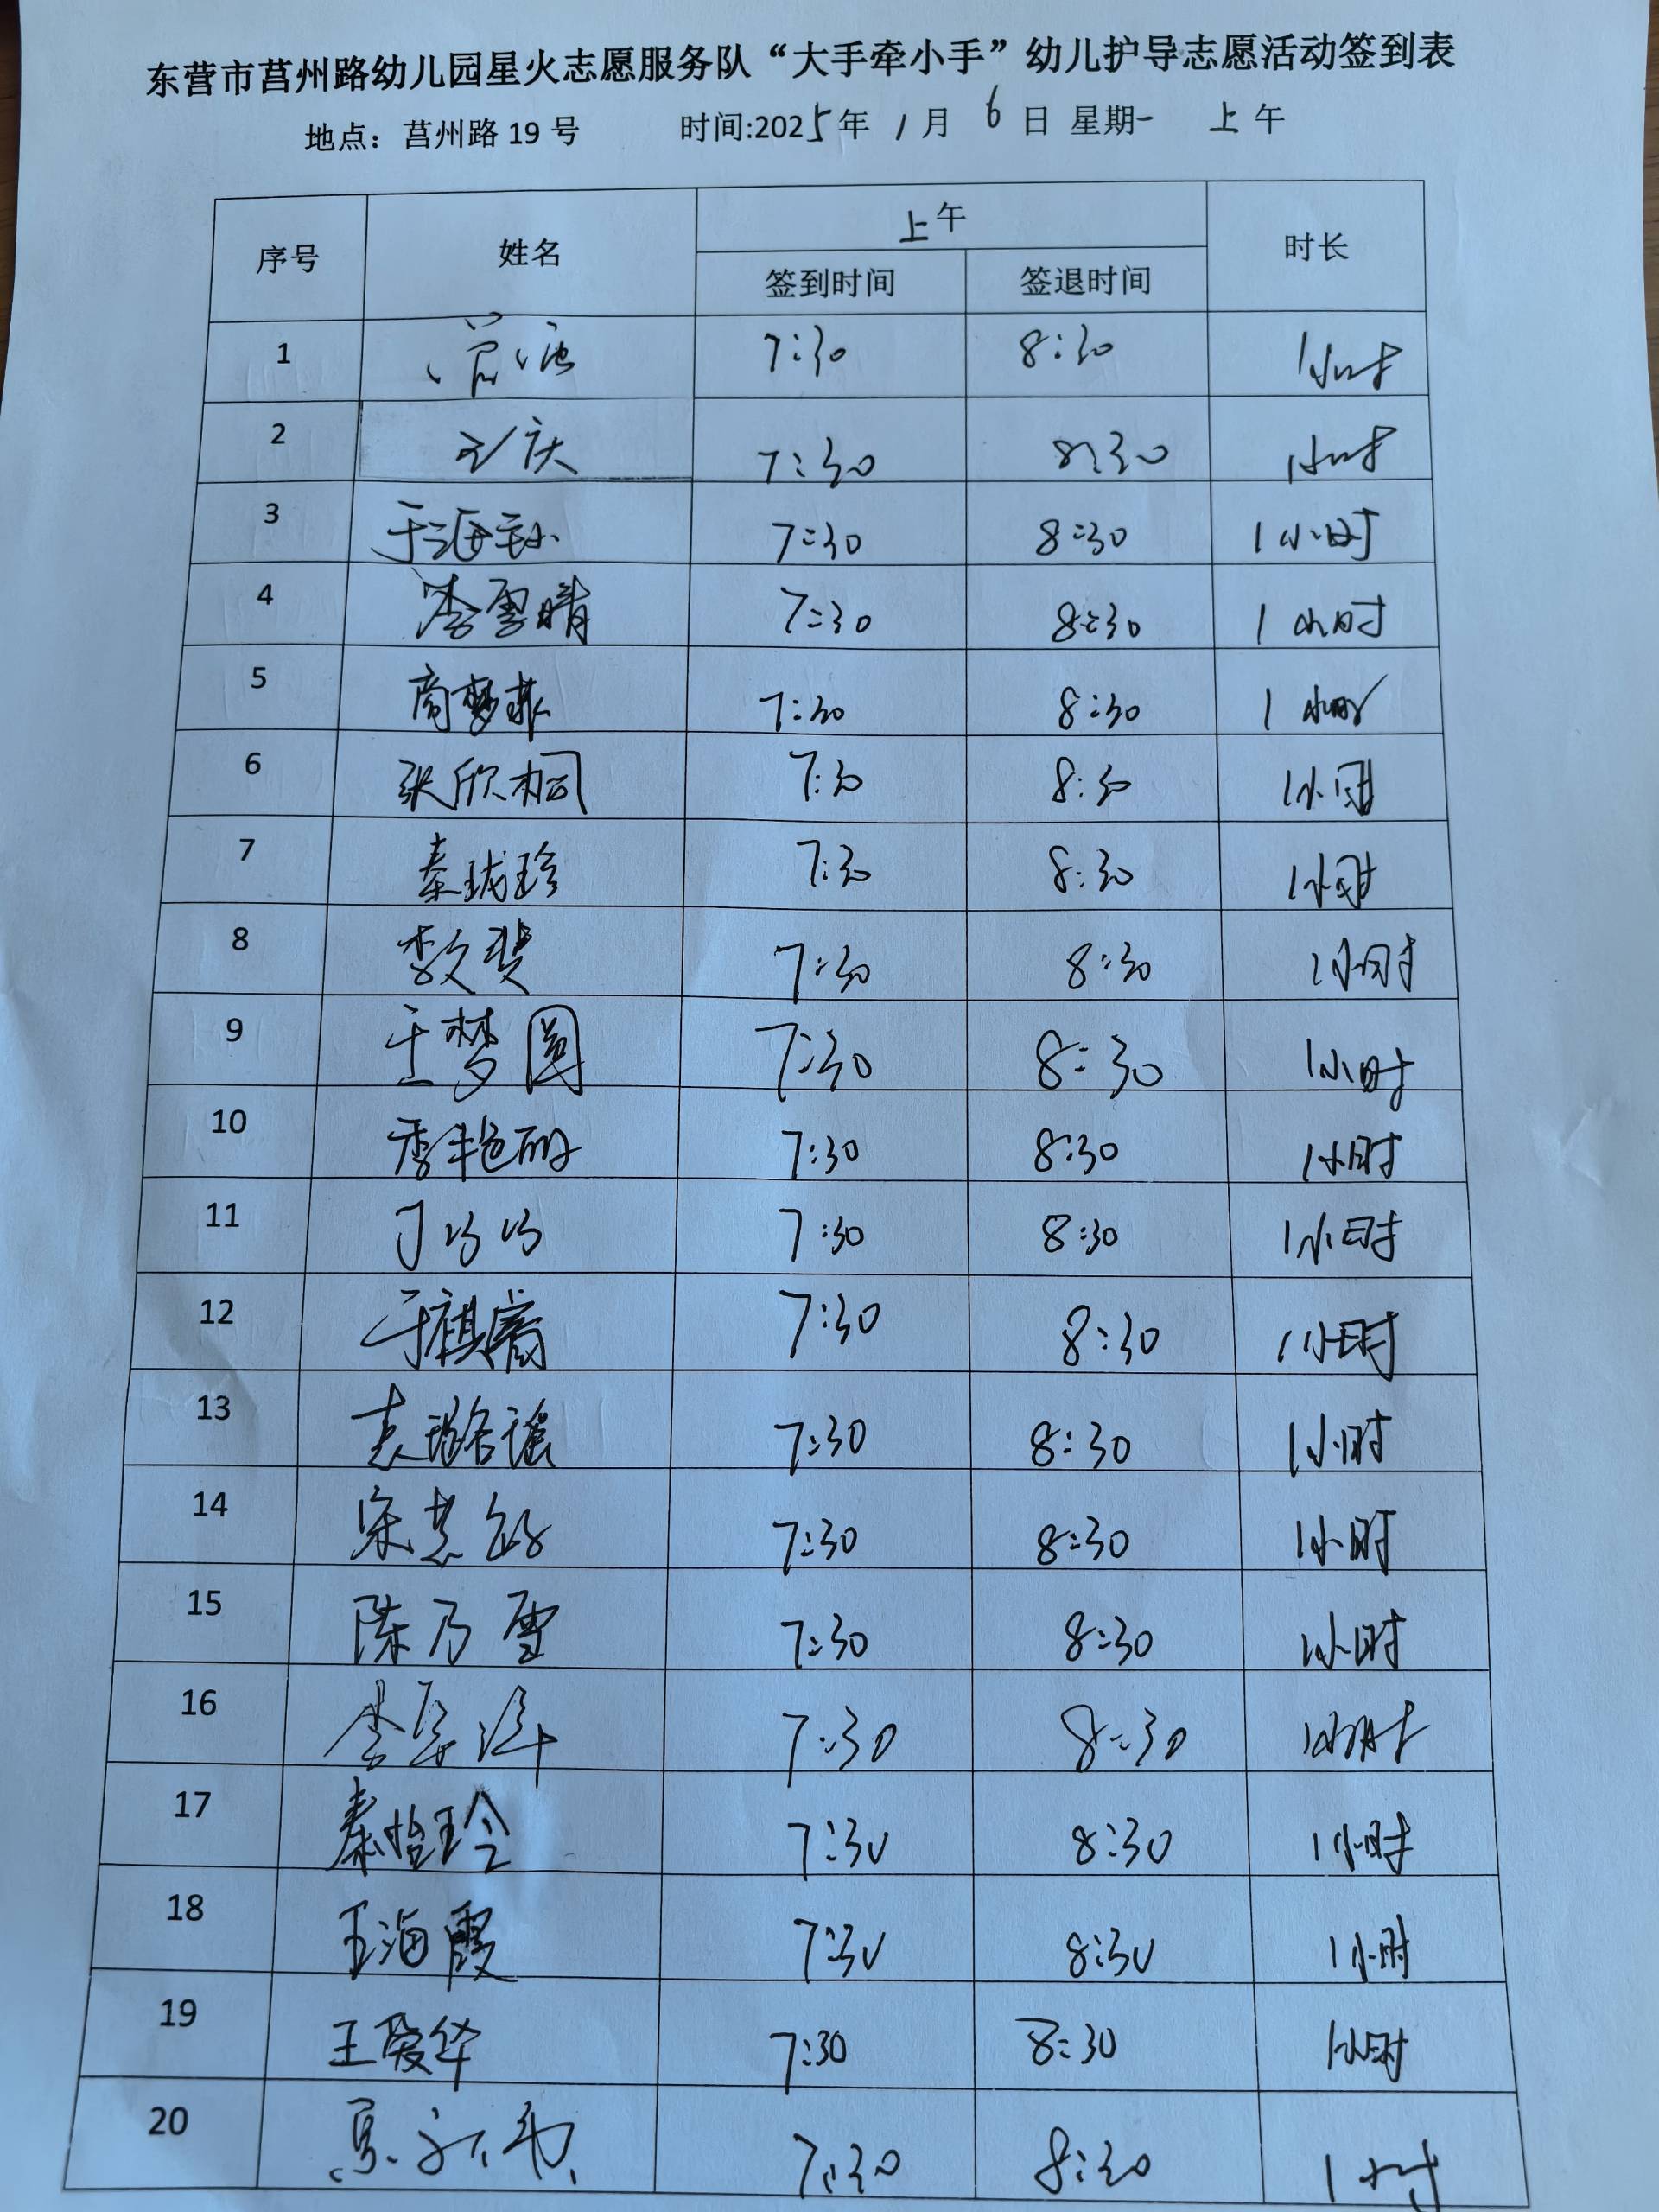 东营市莒州路幼儿园星火志愿服务队“大手牵小手”幼儿护导志愿活动签到表
地点：莒州路 19 号 时间:2025年 1月 6日 星期一 上午
序号 姓名 上午 时长
签到时间 签退时间
1 7:30 8:30 1小时
2 王庆 7:30 8:30 1小时
3 于海 7:30 8:30 1小时
4 李雪晴 7:30 8:30 1小时
5 商梦菲 7:30 8:30 1小时
6 张欣桐 7:30 8:30 1小时
7 秦珑珍 7:30 8:30 1小时
8 李文斐 7:30 8:30 1小时
9 王梦圆 7:30 8:30 1小时
10 季艳丽 7:30 8:30 1小时
11 丁 7:30 8:30 1小时
12 于麒 7:30 8:30 1小时
13 袁璐瑶 7:30 8:30 1小时
14 宋慧 7:30 8:30 1小时
15 陈乃雪 7:30 8:30 1小时
16 李 7:30 8:30 1小时
17 秦怡玲 7:30 8:30 1小时
18 王海霞 7:30 8:30 1小时
19 王爱华 7:30 8:30 1小时
20 7:30 8:30 1小时